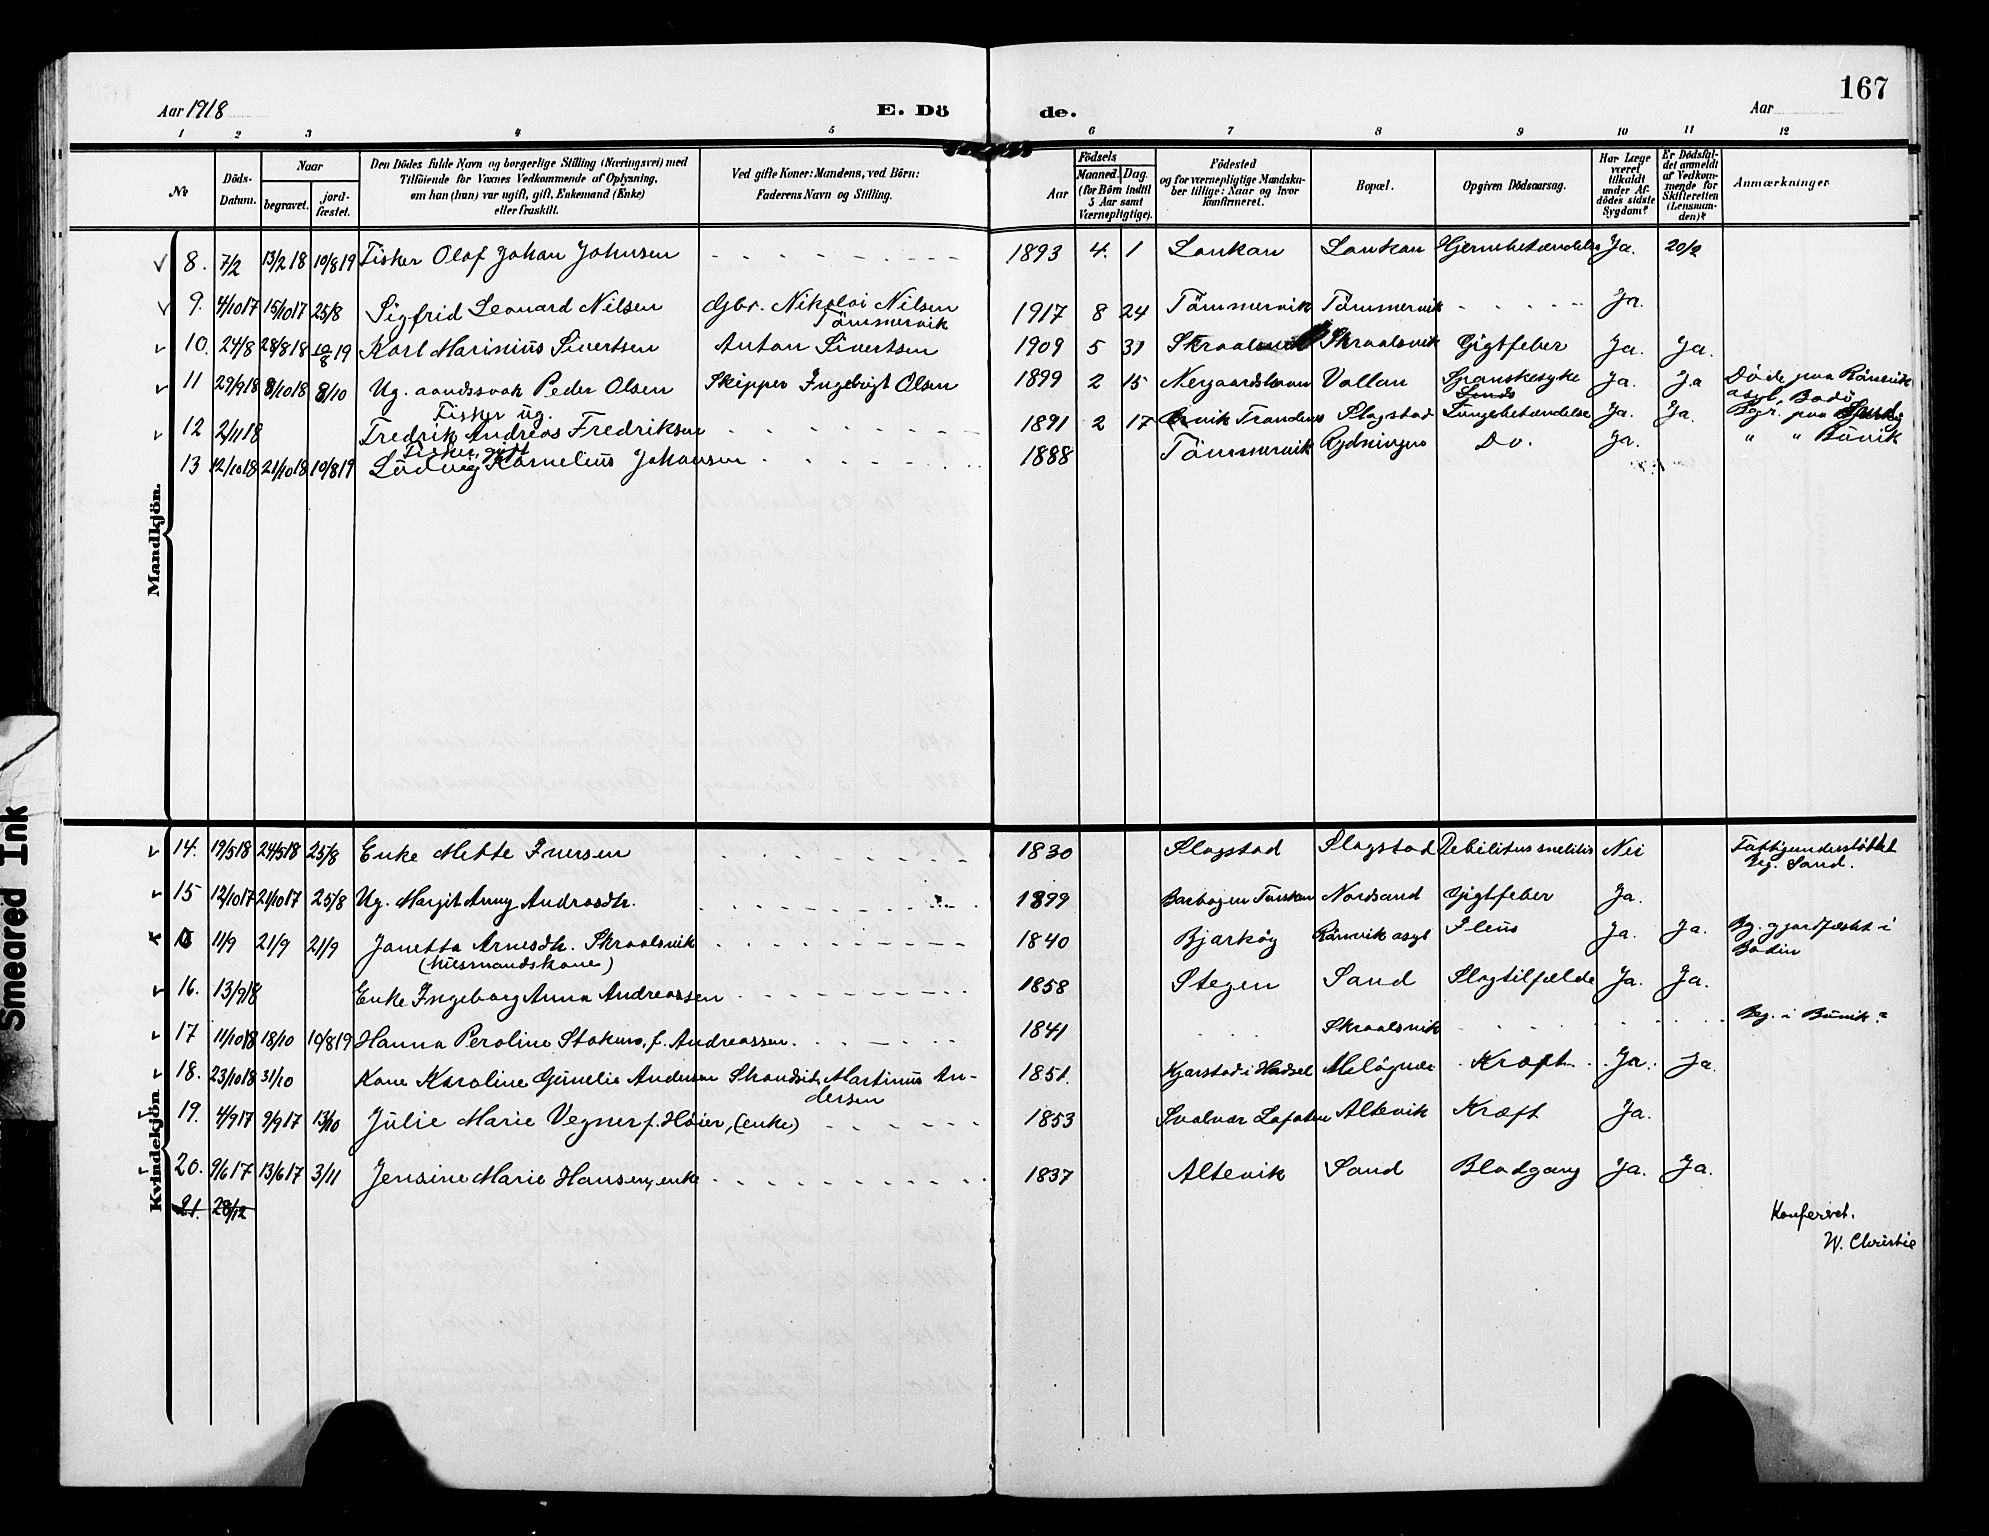 167
Aar 1918 E. Dö de. Aar
1 2 3 4 5 6 7 8 9 10 11 12
No Döds-Datum. Naar begravet. jord-fæstet. Den Dödes fulde Navn og borgerlige Stilling (Næringsvei) med Tilföiende for Voxnes Vedkommende af Oplysning, om han (hun) var ugift, gift, Enkemand (Enke) eller fraskilt. Ved gifte Koner: Mandens, ved Börn: Faderens Navn og Stilling. Aar Födsels Maaned. Dag. (for Börn indtil 5 Aar samt Værnepligtige). Födested og for værnepligtige Mandskaber tillige: Naar og hvor konfirmeret. Bopæl. Opgiven Dödsaarsag. Har Læge været tilkaldt under Afdödes sidste Sygdom? Er Dödsfaldet anmeldt af Vedkommende for Skifteretten (Lensmanden)? Anmærkninger
Mandkjön.
8. 7/2 13/2 18 10/8 19 Fisker Olaf Johan Johnsen 1893 4. 1 Lankan Lankan Hjernebetændelse Ja. 20/2
9. 4/10 17 15/10 17 25/8 Sigfrid Leonard Nilsen Gbr. Nikolai Nilsen Tömmervik 1917 8 24 Tömmervik Tömmervik Ja.
10. 24/8 28/8 18 10/8 19 Karl Marinius Sivertsen Anton Sivertsen 1909 5 31 Skraalsvik Skraalsvik Gigtfeber Ja. Ja.
11 29/9 18 8/10 18 8/10 Ug. aandssvak Peder Olsen Skipper Ingebrigt Olsen 1899 2 15 Nergaardshavn Vallan Spanskesyke Ja. Ja Döde paa Rönvik asyl, Bodö
12 2/11 18 Fisker ug. Fredrik Andreas Fredriksen 1891 2 17 Trandenes Slagstad Lungebetændelse Ja. Ja. Bgr. paa Sand
13 12/10 18 21/10 18 10/8 19 Fisker, gift Ludvig Kornelius Johansen 1888 Tömmervik Rydningen Do. Ja. " " Bunvik
Kvindekjön
14. 19/5 18 24/5 18 25/8 Enke Mette Iversen 1830 Slagstad Slagstad Debilitus snelitis Nei Fattigunderstöttet Beg. Sand.
15 12/10 17 21/10 17 25/8 Ug. Margit Anny Andrasdtr. 1899 Nordsand Gigtfeber Ja.
11/9 21/9 21/9 Janetta Arnesdtr. Skraalsvik (husmandskone) 1840 Bjarköy Rönvik asyl Ileus Ja. Ja. Beg. og jordfæstet i Bodin
16. 13/9 18 Enke Ingeborg Anna Andreassen 1858 Stegen Sand Slagtilfælde Ja. Ja.
17 11/10 18 18/10 10/8 19 Hanna Peroline Stokmo, f. Andreassen. 1841 Skraalsvik Beg. i Bunvik?
18. 23/10 18 31/10 Kone Karoline Gunelie Andersen Strandsit. Martinus Andersen 1851. Kjarstad i Hadsel Melöynæs Kræft Ja. Ja.
19. 4/9 17 9/9 17 13/10 Julie Marie Vegner f. Höier, (enke) 1853 Svolvær Lofoten Altevik Kræft Ja.
20. 9/6 17 13/6 17 3/11 Jensine Marie Hansen, enke 1837 Altevik Sand Blodgang Ja. Ja.
21. 28/12
Konferert.
W. Christie
Smeared Ink